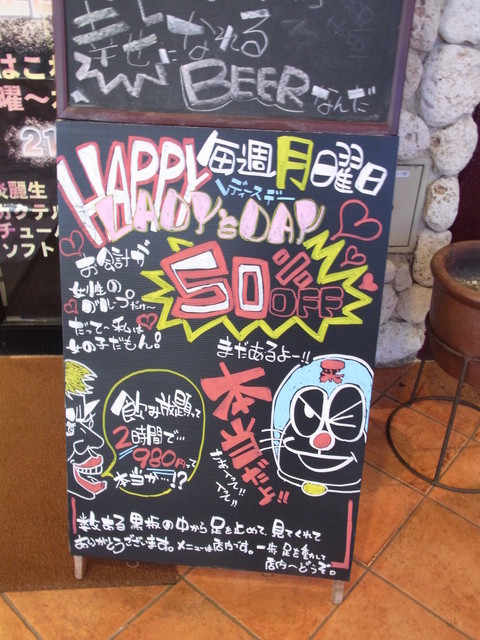 幸せになれる
BEERなんだ
はこ
曜~
21
生
カクテル
チュー
ソフト
HAPPY 毎週月曜日
レディースデー
LADY'sDAY
お会計が
50%OFF
女性の
グループだけ~
だって~私は
女の子だもん!
まだあるよー!!
飲み放題って
2時間で…
980円って
本当か…!?
本当だッチ!!
数ある黒板の中から足を止めて、見てくれて
ありがとうございます。メニューは店内です。一歩足を動かして
店内へどうぞ。